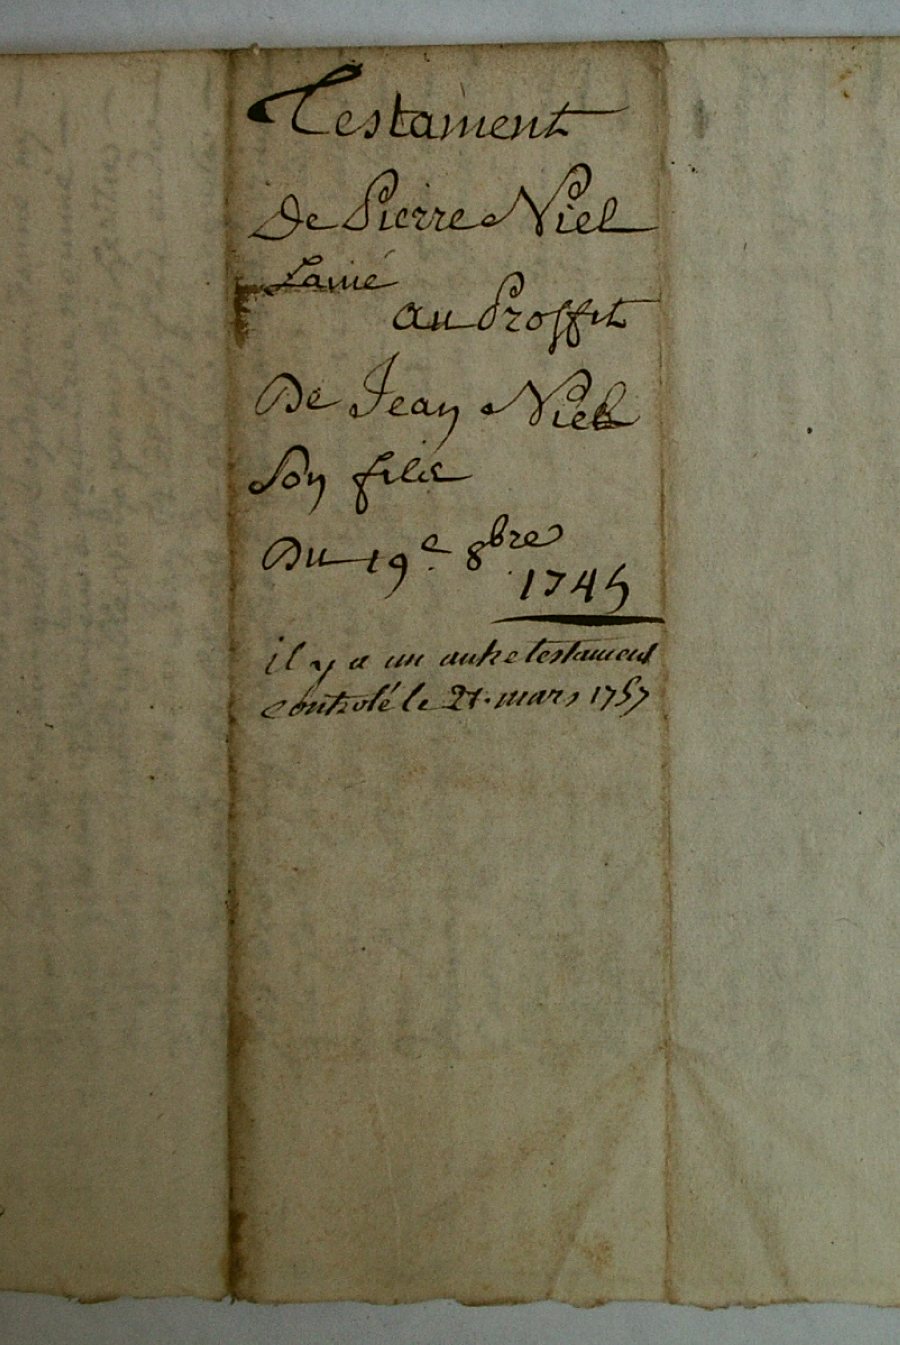 Testament
De Pierre Niel
Lainé
au Proffit
De Jean Niel
Son fils
Du 19e 8bre
1745
il y a un autre testament
controlé le 21. mars 1757